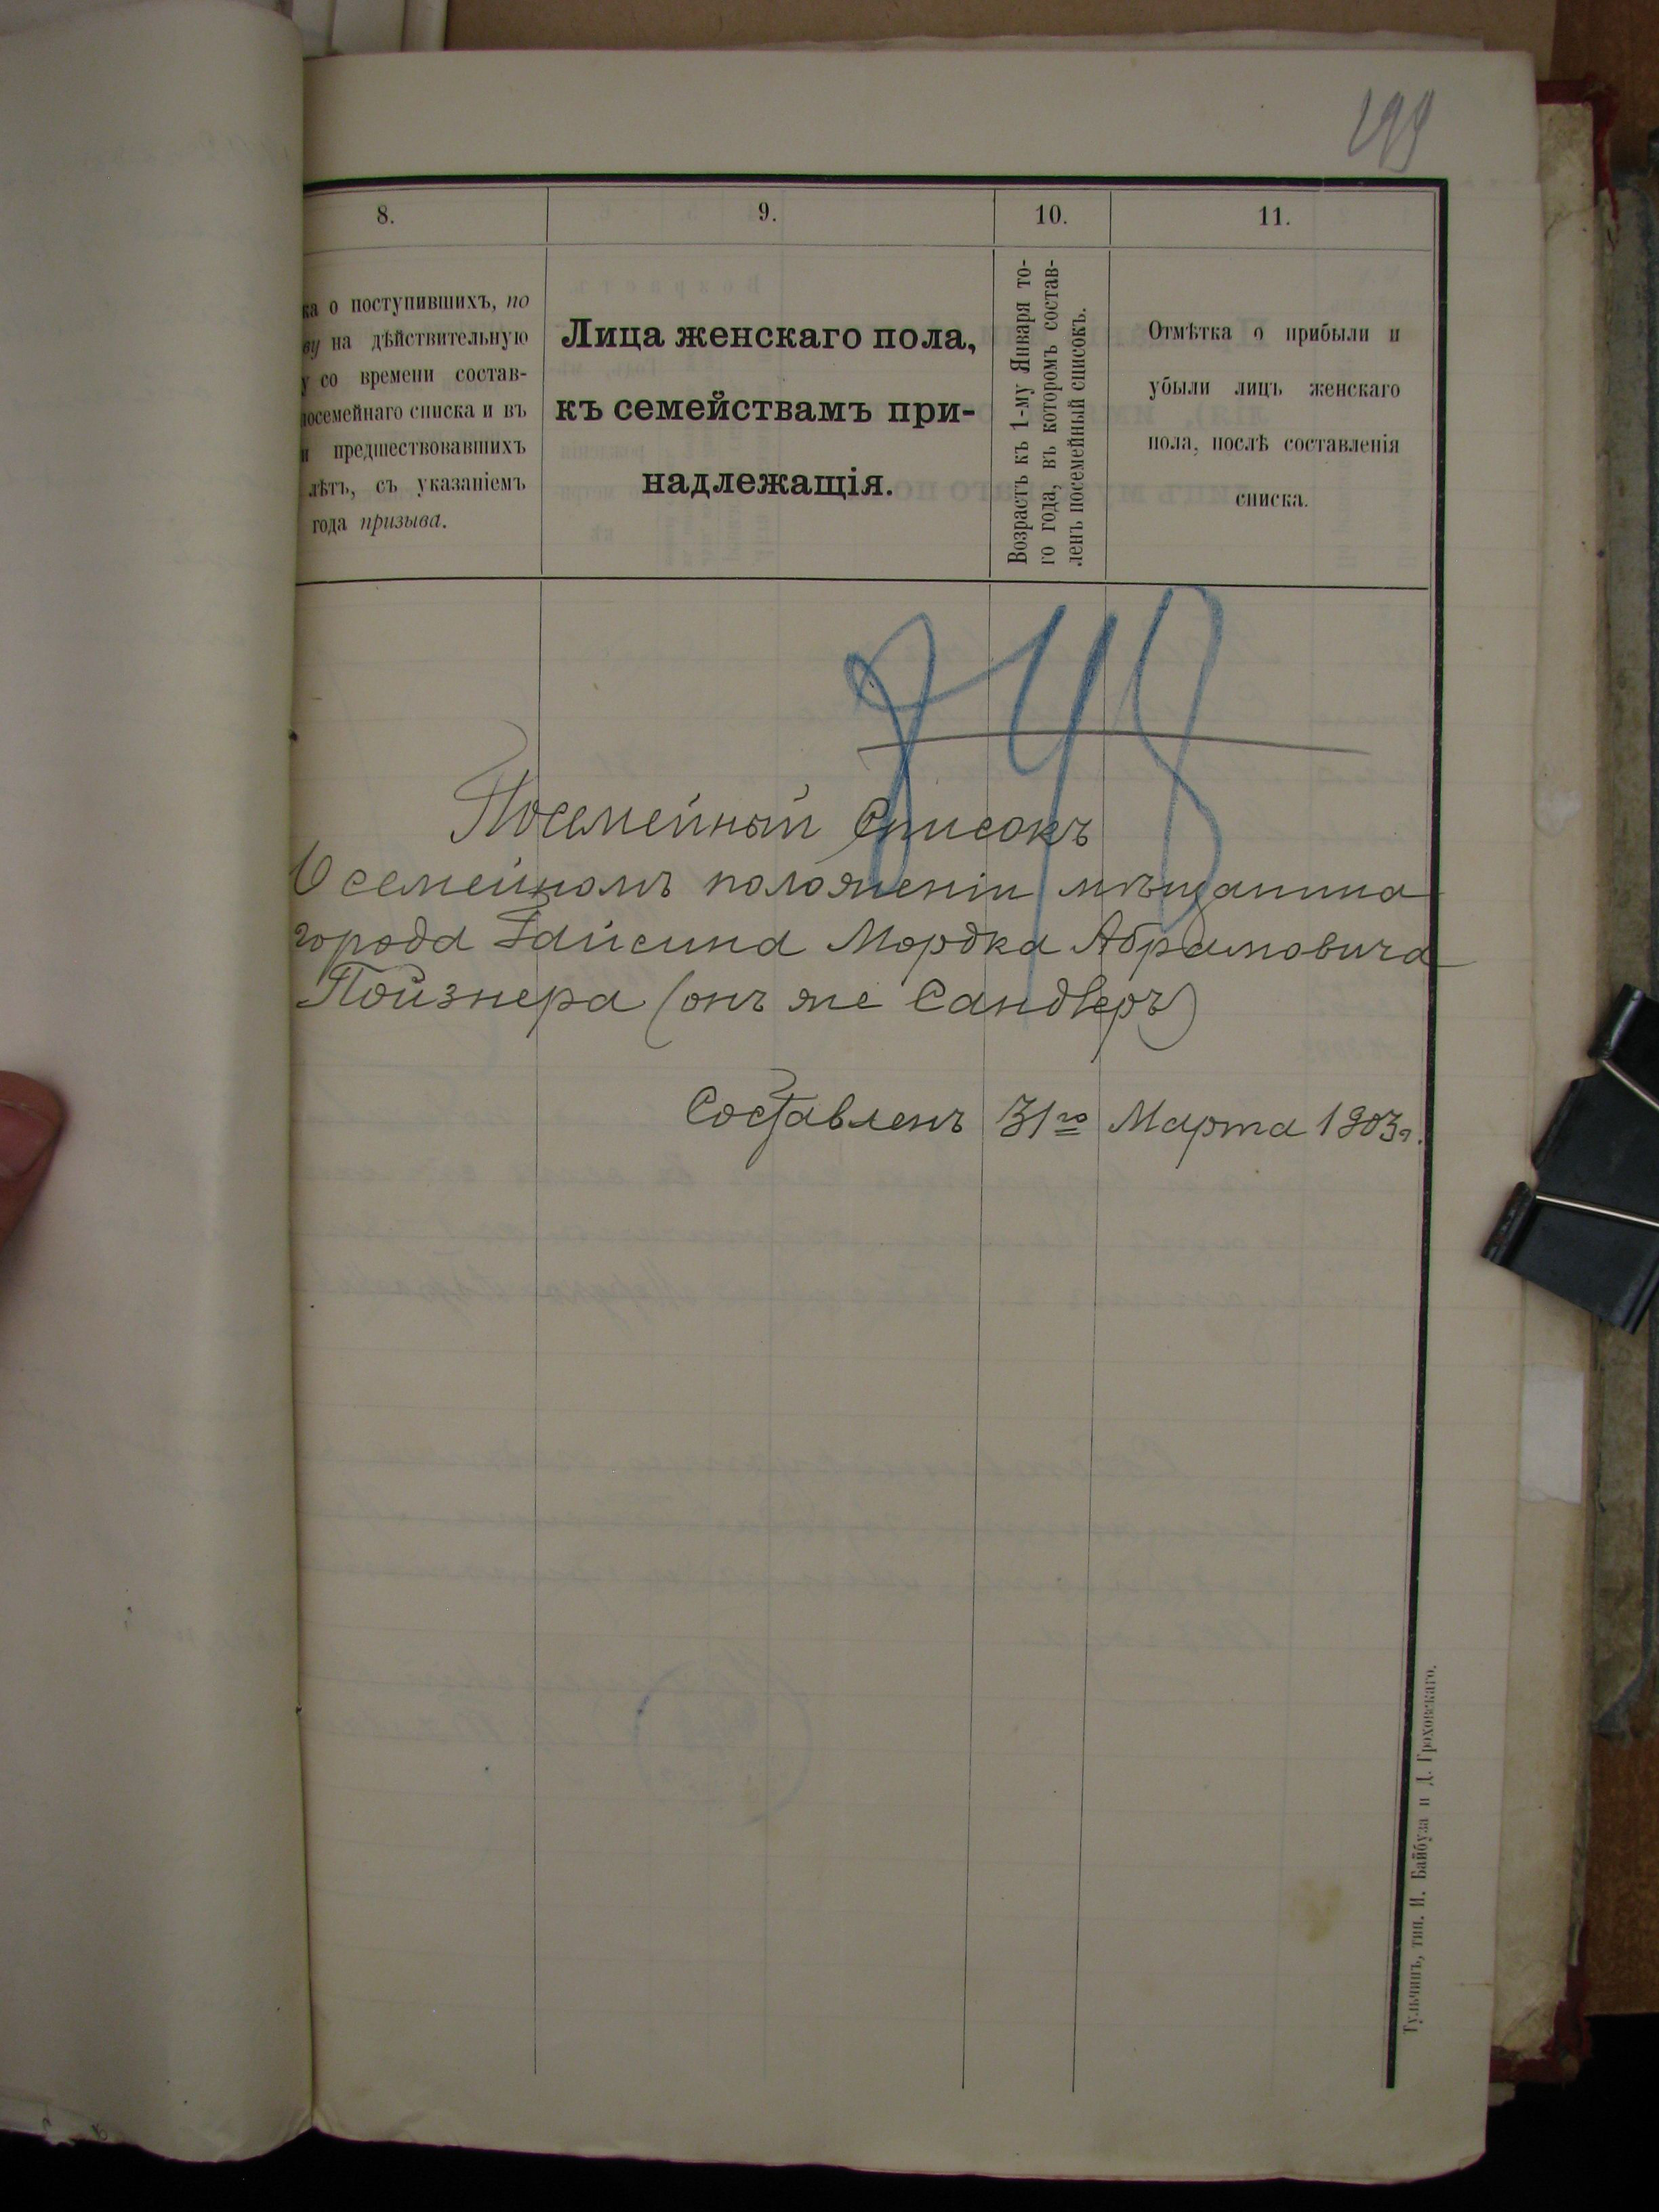 199
8. 9. 10. 11.
ка о поступившихъ, по
ву на дѣйствительную
у со времени состав-
посемейнаго списка и въ
и предшествовавшихъ
лѣтъ, съ указаніемъ
года призыва.
Лица женскаго пола,
къ семействамъ при-
надлежащія.
Возрастъ къ 1-му Января то-
го года, въ которомъ состав-
ленъ посемейный списокъ.
Отмѣтка о прибыли и
убыли лицъ женскаго
пола, послѣ составленія
списка.
Посемейный Списокъ
О семейномъ положеніи мѣщанина
города Гайсина Мордка Абрамовича
Пойзнера (онъ же Сандлеръ)
Составленъ 31го Марта 1903г.
Тульчинъ, тип. И. Байбуза и Д. Гроховскаго.